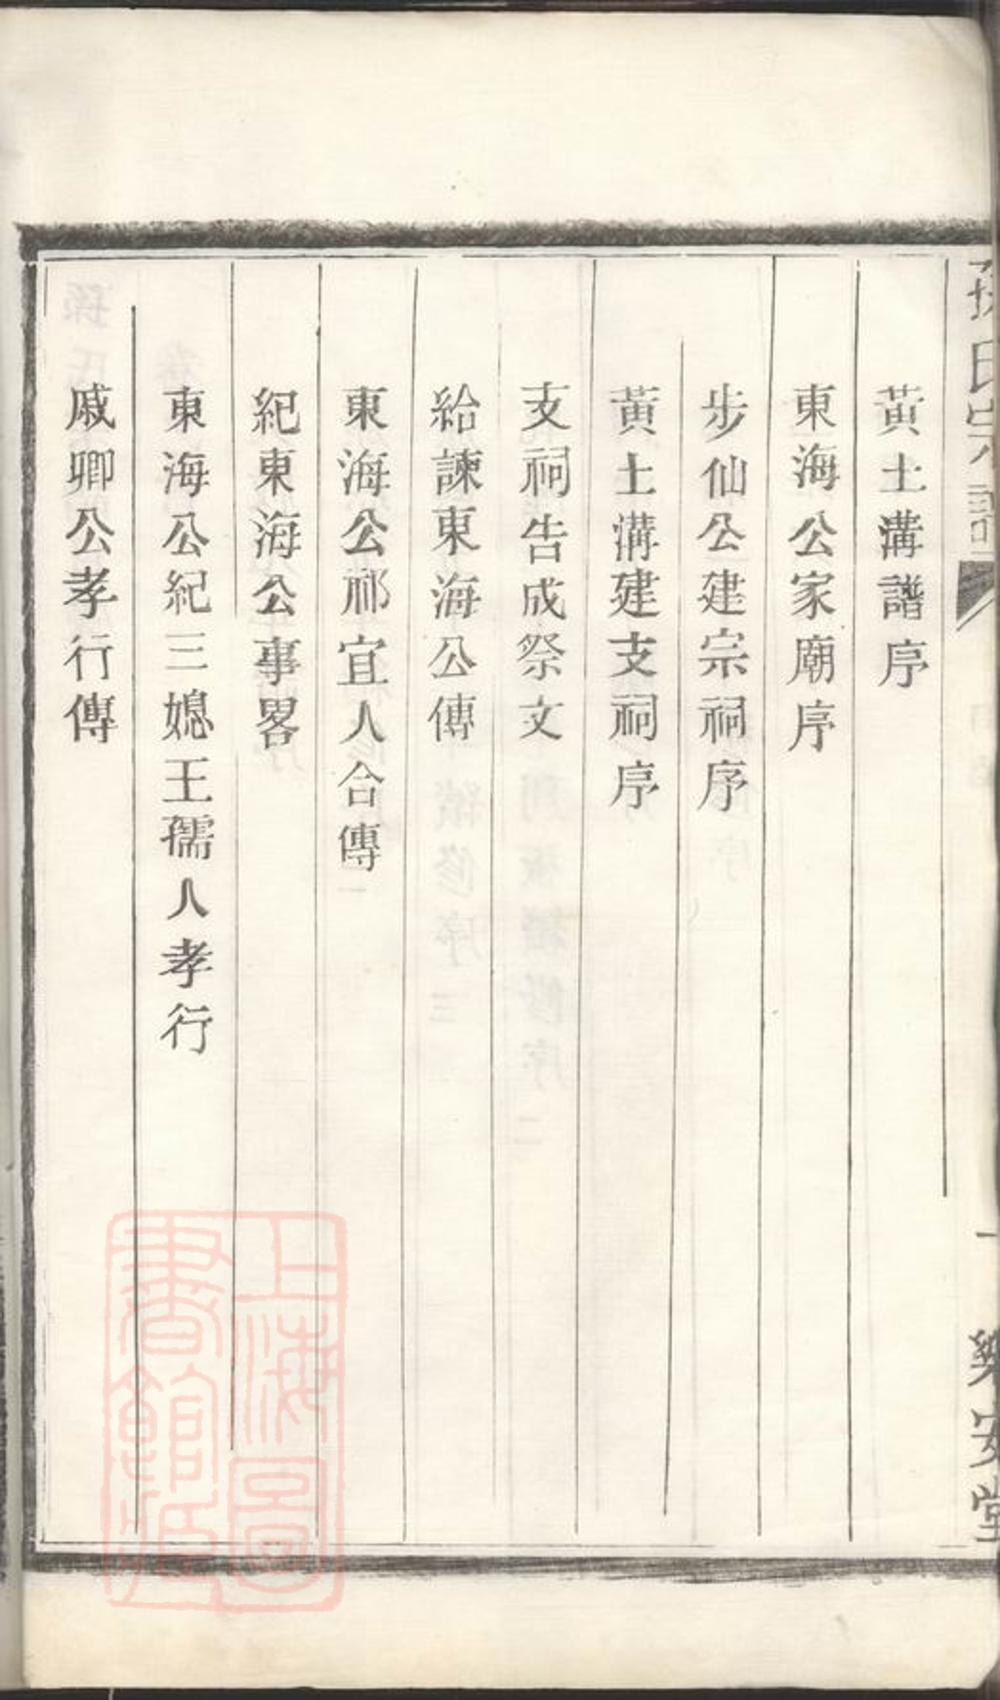 孫氏宗譜
一
樂安堂
黃土溝譜序
東海公家廟序
步仙公建宗祠序
黃土溝建支祠序
支祠告成祭文
給諫東海公傳
東海公祁宜人合傳
紀東海公事畧
東海公紀三媳王孺人孝行
戚卿公孝行傳
上海圖
書館藏